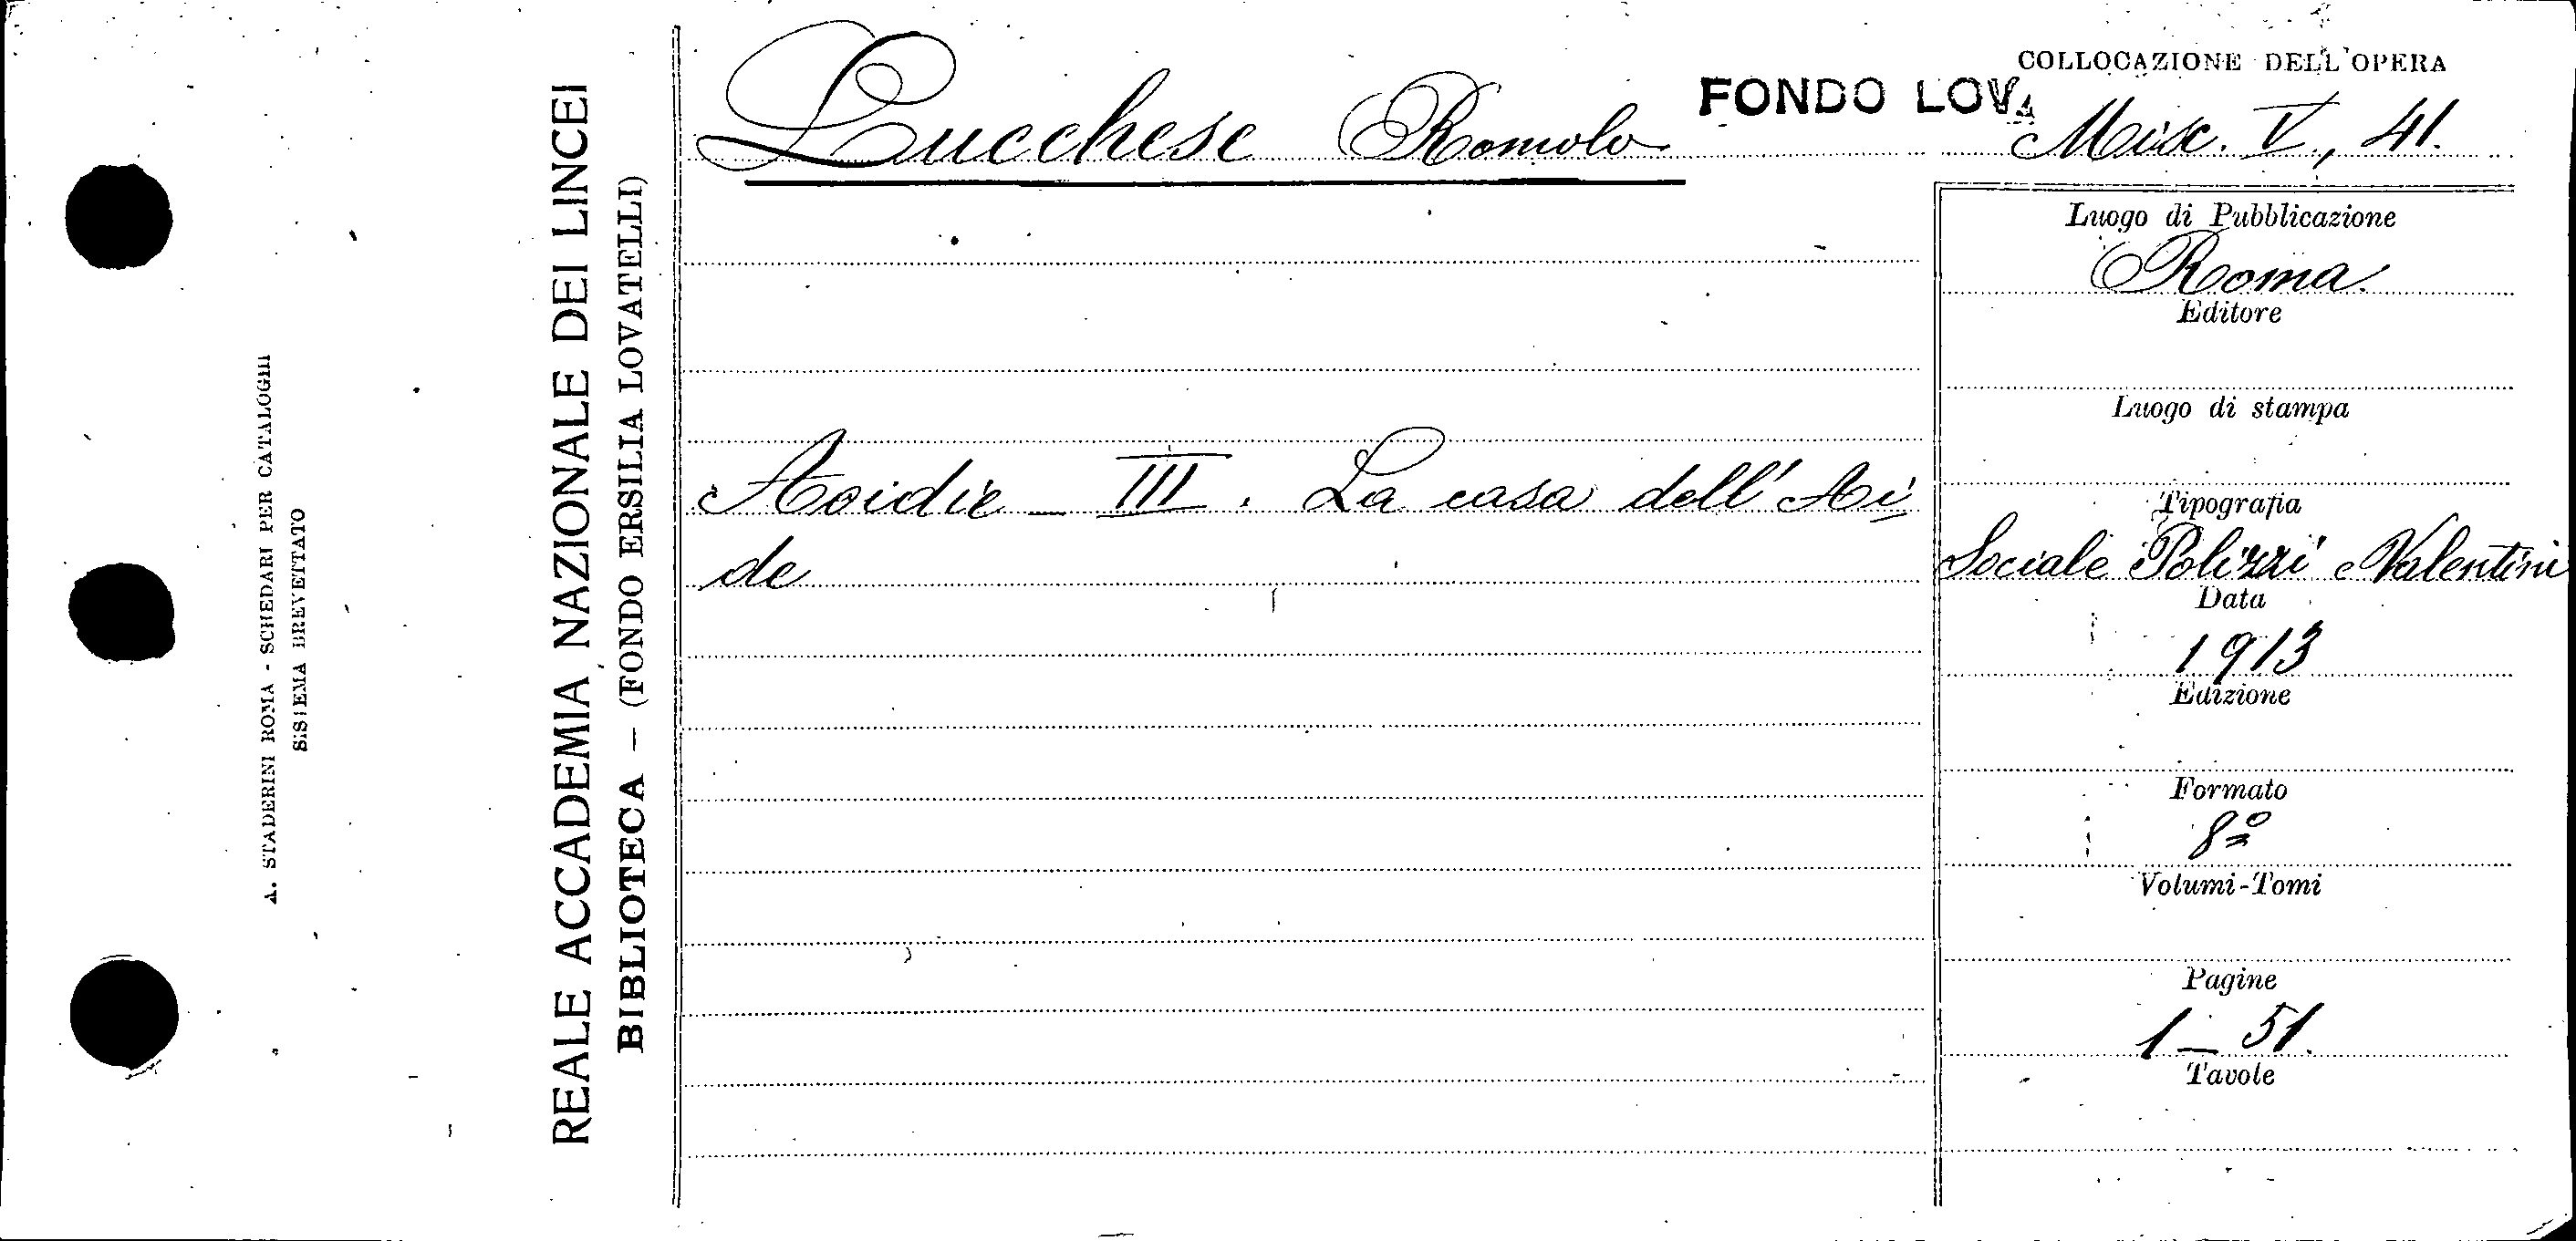 A. STADERINI ROMA - SCHEDARI PER CATALOGHI
SISTEMA BREVETTATO
REALE ACCADEMIA NAZIONALE DEI LINCEI
BIBLIOTECA — (FONDO ERSILIA LOVATELLI)
Lucchese Romolo
FONDO LOVA
COLLOCAZIONE DELL'OPERA
Misc. V, 41.
Aoidie - III. La casa dell' Ai
de
Luogo di Pubblicazione
Roma
Editore
Luogo di stampa
Tipografia
Sociale Polizzi e Valentini
Data
1913
Edizione
Formato
8º
Volumi-Tomi
Pagine
1 — 51.
Tavole